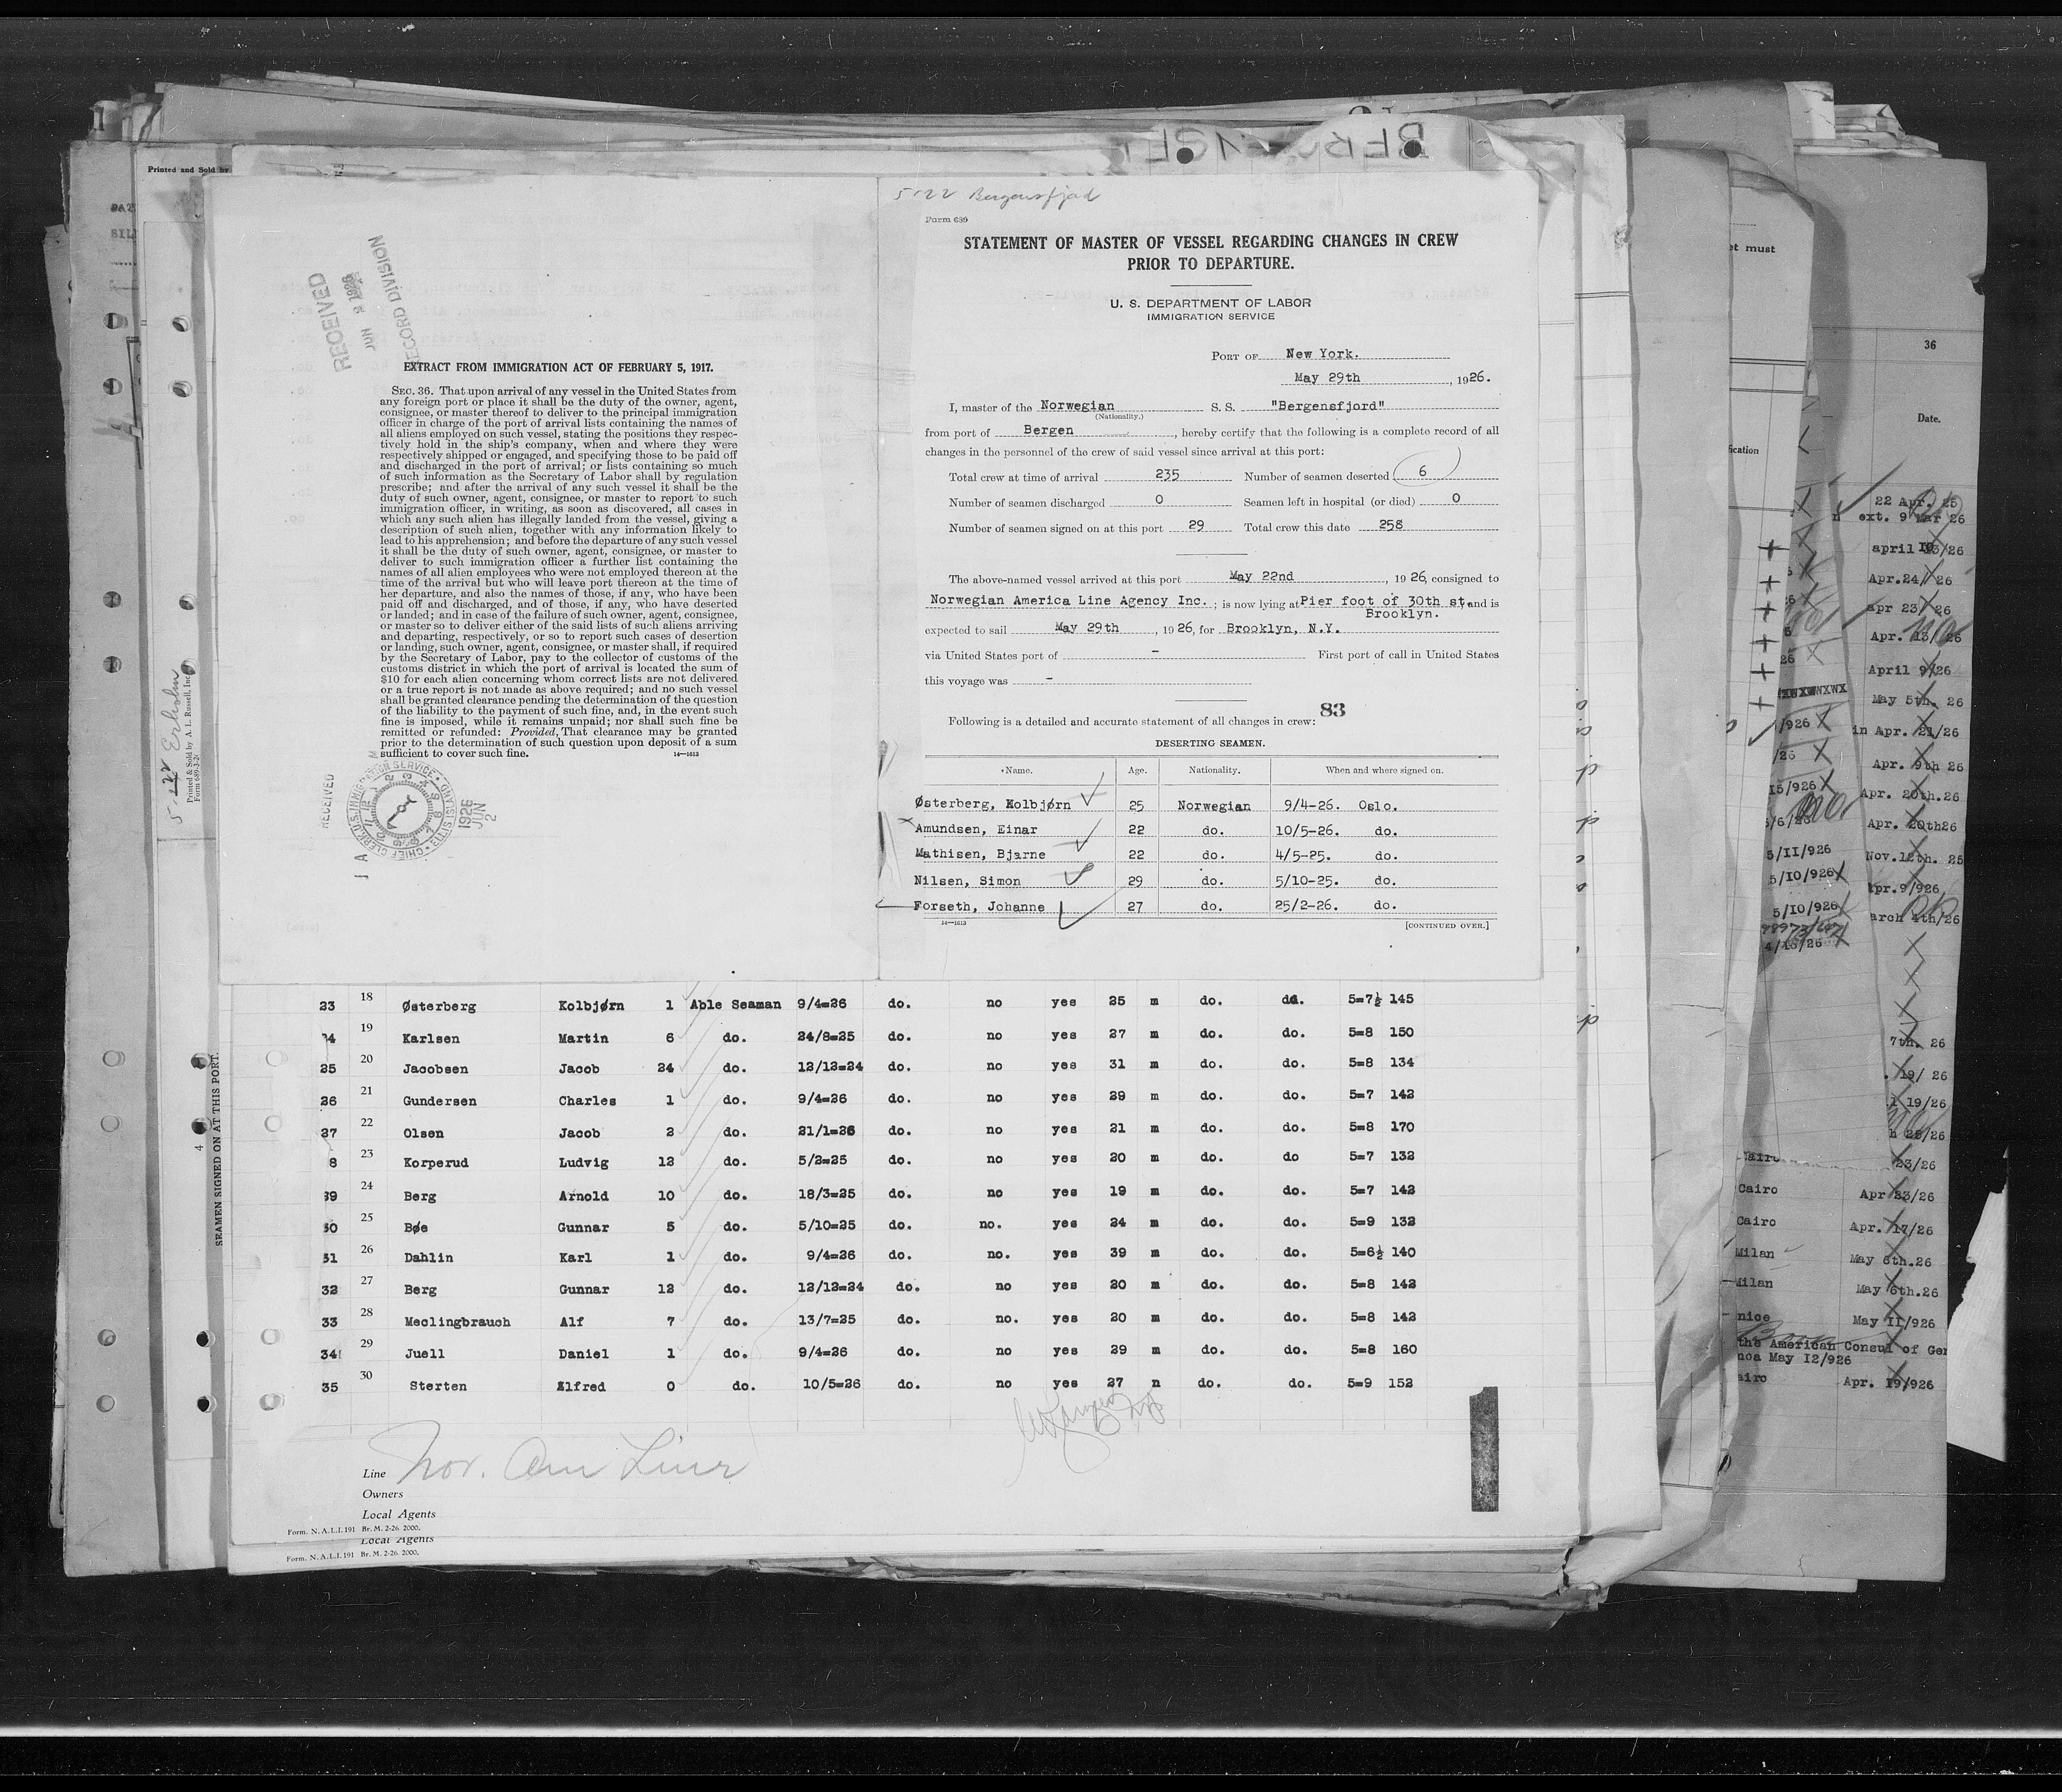 Printed and Sold by
BERGENSF
5-22 Bergensfjord
Form 689
STATEMENT OF MASTER OF VESSEL REGARDING CHANGES IN CREW
PRIOR TO DEPARTURE.
U. S. DEPARTMENT OF LABOR
IMMIGRATION SERVICE
PORT OF New York.
May 29th, 1926.
I, master of the Norwegian S. S. "Bergensfjord"
(Nationality.)
from port of Bergen, hereby certify that the following is a complete record of all
changes in the personnel of the crew of said vessel since arrival at this port:
Total crew at time of arrival 235 Number of seamen deserted 6
Number of seamen discharged 0 Seamen left in hospital (or died) 0
Number of seamen signed on at this port 29 Total crew this date 258
The above-named vessel arrived at this port May 22nd, 1926, consigned to
Norwegian America Line Agency Inc.; is now lying at Pier foot of 30th st, and is
Brooklyn.
expected to sail May 29th, 1926, for Brooklyn, N.Y.
via United States port of - First port of call in United States
this voyage was -
83
Following is a detailed and accurate statement of all changes in crew:
DESERTING SEAMEN.
Name. Age. Nationality. When and where signed on.
Østerberg, Kolbjørn 25 Norwegian 9/4-26. Oslo.
Amundsen, Einar 22 do. 10/5-26. do.
Mathisen, Bjarne 22 do. 4/5-25. do.
Nilsen, Simon 29 do. 5/10-25. do.
Forseth, Johanne 27 do. 25/2-26. do.
14—1613 [CONTINUED OVER.]
RECEIVED
JUN 2 1926
RECORD DIVISION
EXTRACT FROM IMMIGRATION ACT OF FEBRUARY 5, 1917.
SEC. 36. That upon arrival of any vessel in the United States from
any foreign port or place it shall be the duty of the owner, agent,
consignee, or master thereof to deliver to the principal immigration
officer in charge of the port of arrival lists containing the names of
all aliens employed on such vessel, stating the positions they respec-
tively hold in the ship's company, when and where they were
respectively shipped or engaged, and specifying those to be paid off
and discharged in the port of arrival; or lists containing so much
of such information as the Secretary of Labor shall by regulation
prescribe; and after the arrival of any such vessel it shall be the
duty of such owner, agent, consignee, or master to report to such
immigration officer, in writing, as soon as discovered, all cases in
which any such alien has illegally landed from the vessel, giving a
description of such alien, together with any information likely to
lead to his apprehension; and before the departure of any such vessel
it shall be the duty of such owner, agent, consignee, or master to
deliver to such immigration officer a further list containing the
names of all alien employees who were not employed thereon at the
time of the arrival but who will leave port thereon at the time of
her departure, and also the names of those, if any, who have been
paid off and discharged, and of those, if any, who have deserted
or landed; and in case of the failure of such owner, agent, consignee,
or master so to deliver either of the said lists of such aliens arriving
and departing, respectively, or so to report such cases of desertion
or landing, such owner, agent, consignee, or master shall, if required
by the Secretary of Labor, pay to the collector of customs of the
customs district in which the port of arrival is located the sum of
$10 for each alien concerning whom correct lists are not delivered
or a true report is not made as above required; and no such vessel
shall be granted clearance pending the determination of the question
of the liability to the payment of such fine, and, in the event such
fine is imposed, while it remains unpaid; nor shall such fine be
remitted or refunded: Provided, That clearance may be granted
prior to the determination of such question upon deposit of a sum
sufficient to cover such fine. 14—1613
RECEIVED
1926 JUN 2
Printed & Sold by A. L. Russell, Inc.
SEAMEN SIGNED ON AT THIS PORT.
23 18 Østerberg Kolbjørn 1 Able Seaman 9/4=26 do. no yes 25 m do. do. 5=7½ 145
24 19 Karlsen Martin 6 do. 24/8=25 do. no yes 27 m do. do. 5=8 150
25 20 Jacobsen Jacob 24 do. 12/12=24 do. no yes 31 m do. do. 5=8 134
26 21 Gundersen Charles 1 do. 9/4=26 do. no yes 29 m do. do. 5=7 142
27 22 Olsen Jacob 2 do. 21/1=26 do. no yes 21 m do. do. 5=8 170
8 23 Korperud Ludvig 12 do. 5/2=25 do. no yes 20 m do. do 5=7 132
29 24 Berg Arnold 10 do. 18/3=25 do. no yes 19 m do. do. 5=7 142
30 25 Bøe Gunnar 5 do. 5/10=25 do. no. yes 24 m do. do. 5=9 132
31 26 Dahlin Karl 1 do. 9/4=26 do. no. yes 39 m do. do. 5=6½ 140
32 27 Berg Gunnar 12 do. 12/12=24 do. no yes 20 m do. do. 5=8 142
33 28 Meclingbrauch Alf 7 do. 13/7=25 do. no. yes 20 m do. do. 5=8 142
34 29 Juell Daniel 1 do. 9/4=26 do. no yes 29 m do. do. 5=8 160
35 30 Sterten Alfred 0 do. 10/5=26 do. no yes 27 n do. do. 5=9 152
Line Nor. Am Line
Owners
Local Agents
Form. N. A. L. I. 191 Br. M. 2-26. 2000.
Local Agents
Form. N. A. L. I. 191 Br. M. 2-26. 2000.
et must
ication
36
Date.
22 Apr. 25
ext. 9 Mar 26
Apr.24/26
apr 23/26
Apr. 13/26
April 9/26
May 5th. 26
in Apr. 21/26
Apr. 9th 26
Apr. 20th.26
Apr. 20th26
5/11/926 Nov.12th. 25
5/10/926 Apr.9/926
5/10/926 arch 4th/26
7th. 26
19/ 26
19/26
23/26
Cairo Apr 23/26
Cairo Apr. 17/26
Milan May 6th.26
Milan May 6th.26
nice May 11/926
the American Consul of Gen
noa May 12/926
airo Apr. 19/926